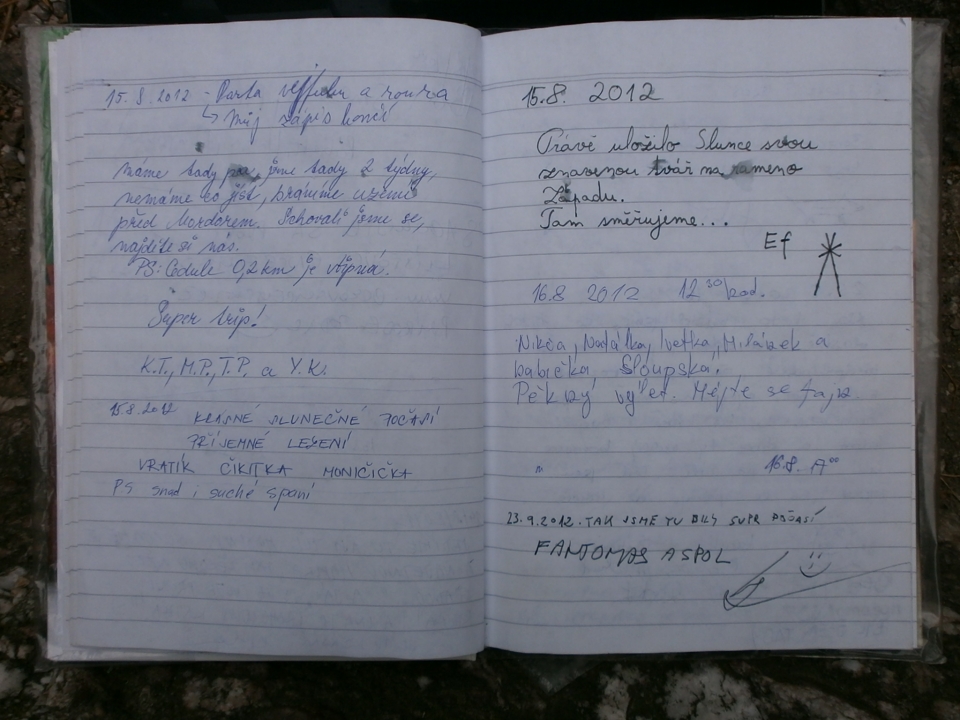 15. 8. 2012 - Parta a
↳ Můj zápis končí
máme tady jsme tady 2 týdny,
nemáme co jíst, bráníme území
před Mordorem. Schovali jsme se,
najděte si nás.
PS: Cedule 0,2 km je vtipná.
Super trip!
K.T., M.P., T.P. a Y.K.
15.8.2012 KRÁSNÉ SLUNEČNÉ POČASÍ
PŘÍJEMNÉ LEŽENÍ
VRATÍK ČIKITKA MONIČIČKA
PS snad i suché spaní
15.8. 2012
Právě uložilo Slunce svou
znavenou tvář na rameno
Západu.
Tam směřujeme...
Ef
16.8 2012 12 30 hod.
Nikča, Natálka, Ivetka, Milánek a
babička Sloupská.
Pěkný výlet. Mějte se fajn.
16.8.
23.9.2012. TAK JSME TU BILY SUPR POČASÍ
FANTOMAS A SPOL